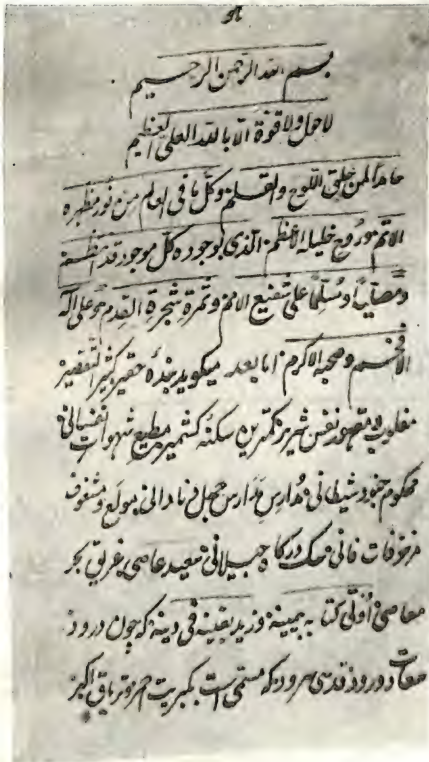 بسم الله الرحمن الرحیم
لاحول ولاقوة الا بالله العلی العظیم
حامداً لمن خلق اللوح والقلم وکل مافی العالم من نور مظهره
الاتم وروح خلیله الاعظم الذی بوجوده کل موجود قد انتظم
ومصلیاً ومسلماً علی شفیع الامم وثمرة شجرة القدم وعلی اله
الافخم وصحبه الاکرم اما بعد میکوید بنده حقیر کثیر التقصیر
مغلوب و مقهور نفس شریر کمترین سکنه کشمیر مطیع شهوات نفسانی
محکوم جنود شیطانی مدارس مدارس جهل و نادانی مولع و مشغوف
مزخرفات فانی سک درکاه جیلانی سعید عاصی غریق بحر
معاصی اوتی کتابه بیمینه وزید یقینه فی دینه که چون درود
درود قدسی مسمی است بکبریت احمر وتریاق اکبر